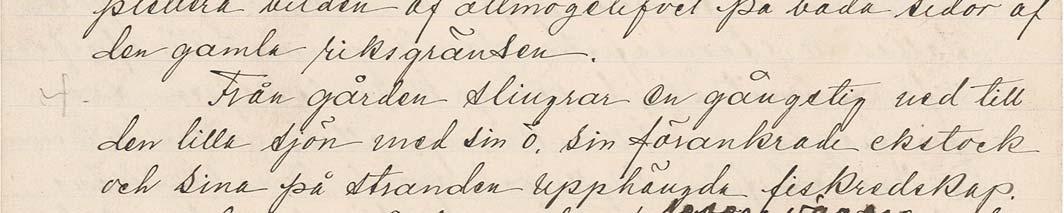 plettera bilden af allmogelifvet på båda sidor af
den gamla riksgränsen.
Från gården slingrar en gångstig ned till
den lilla sjön med sin ö, sin förankrade ekstock
och sina på stranden upphängda fiskredskap.